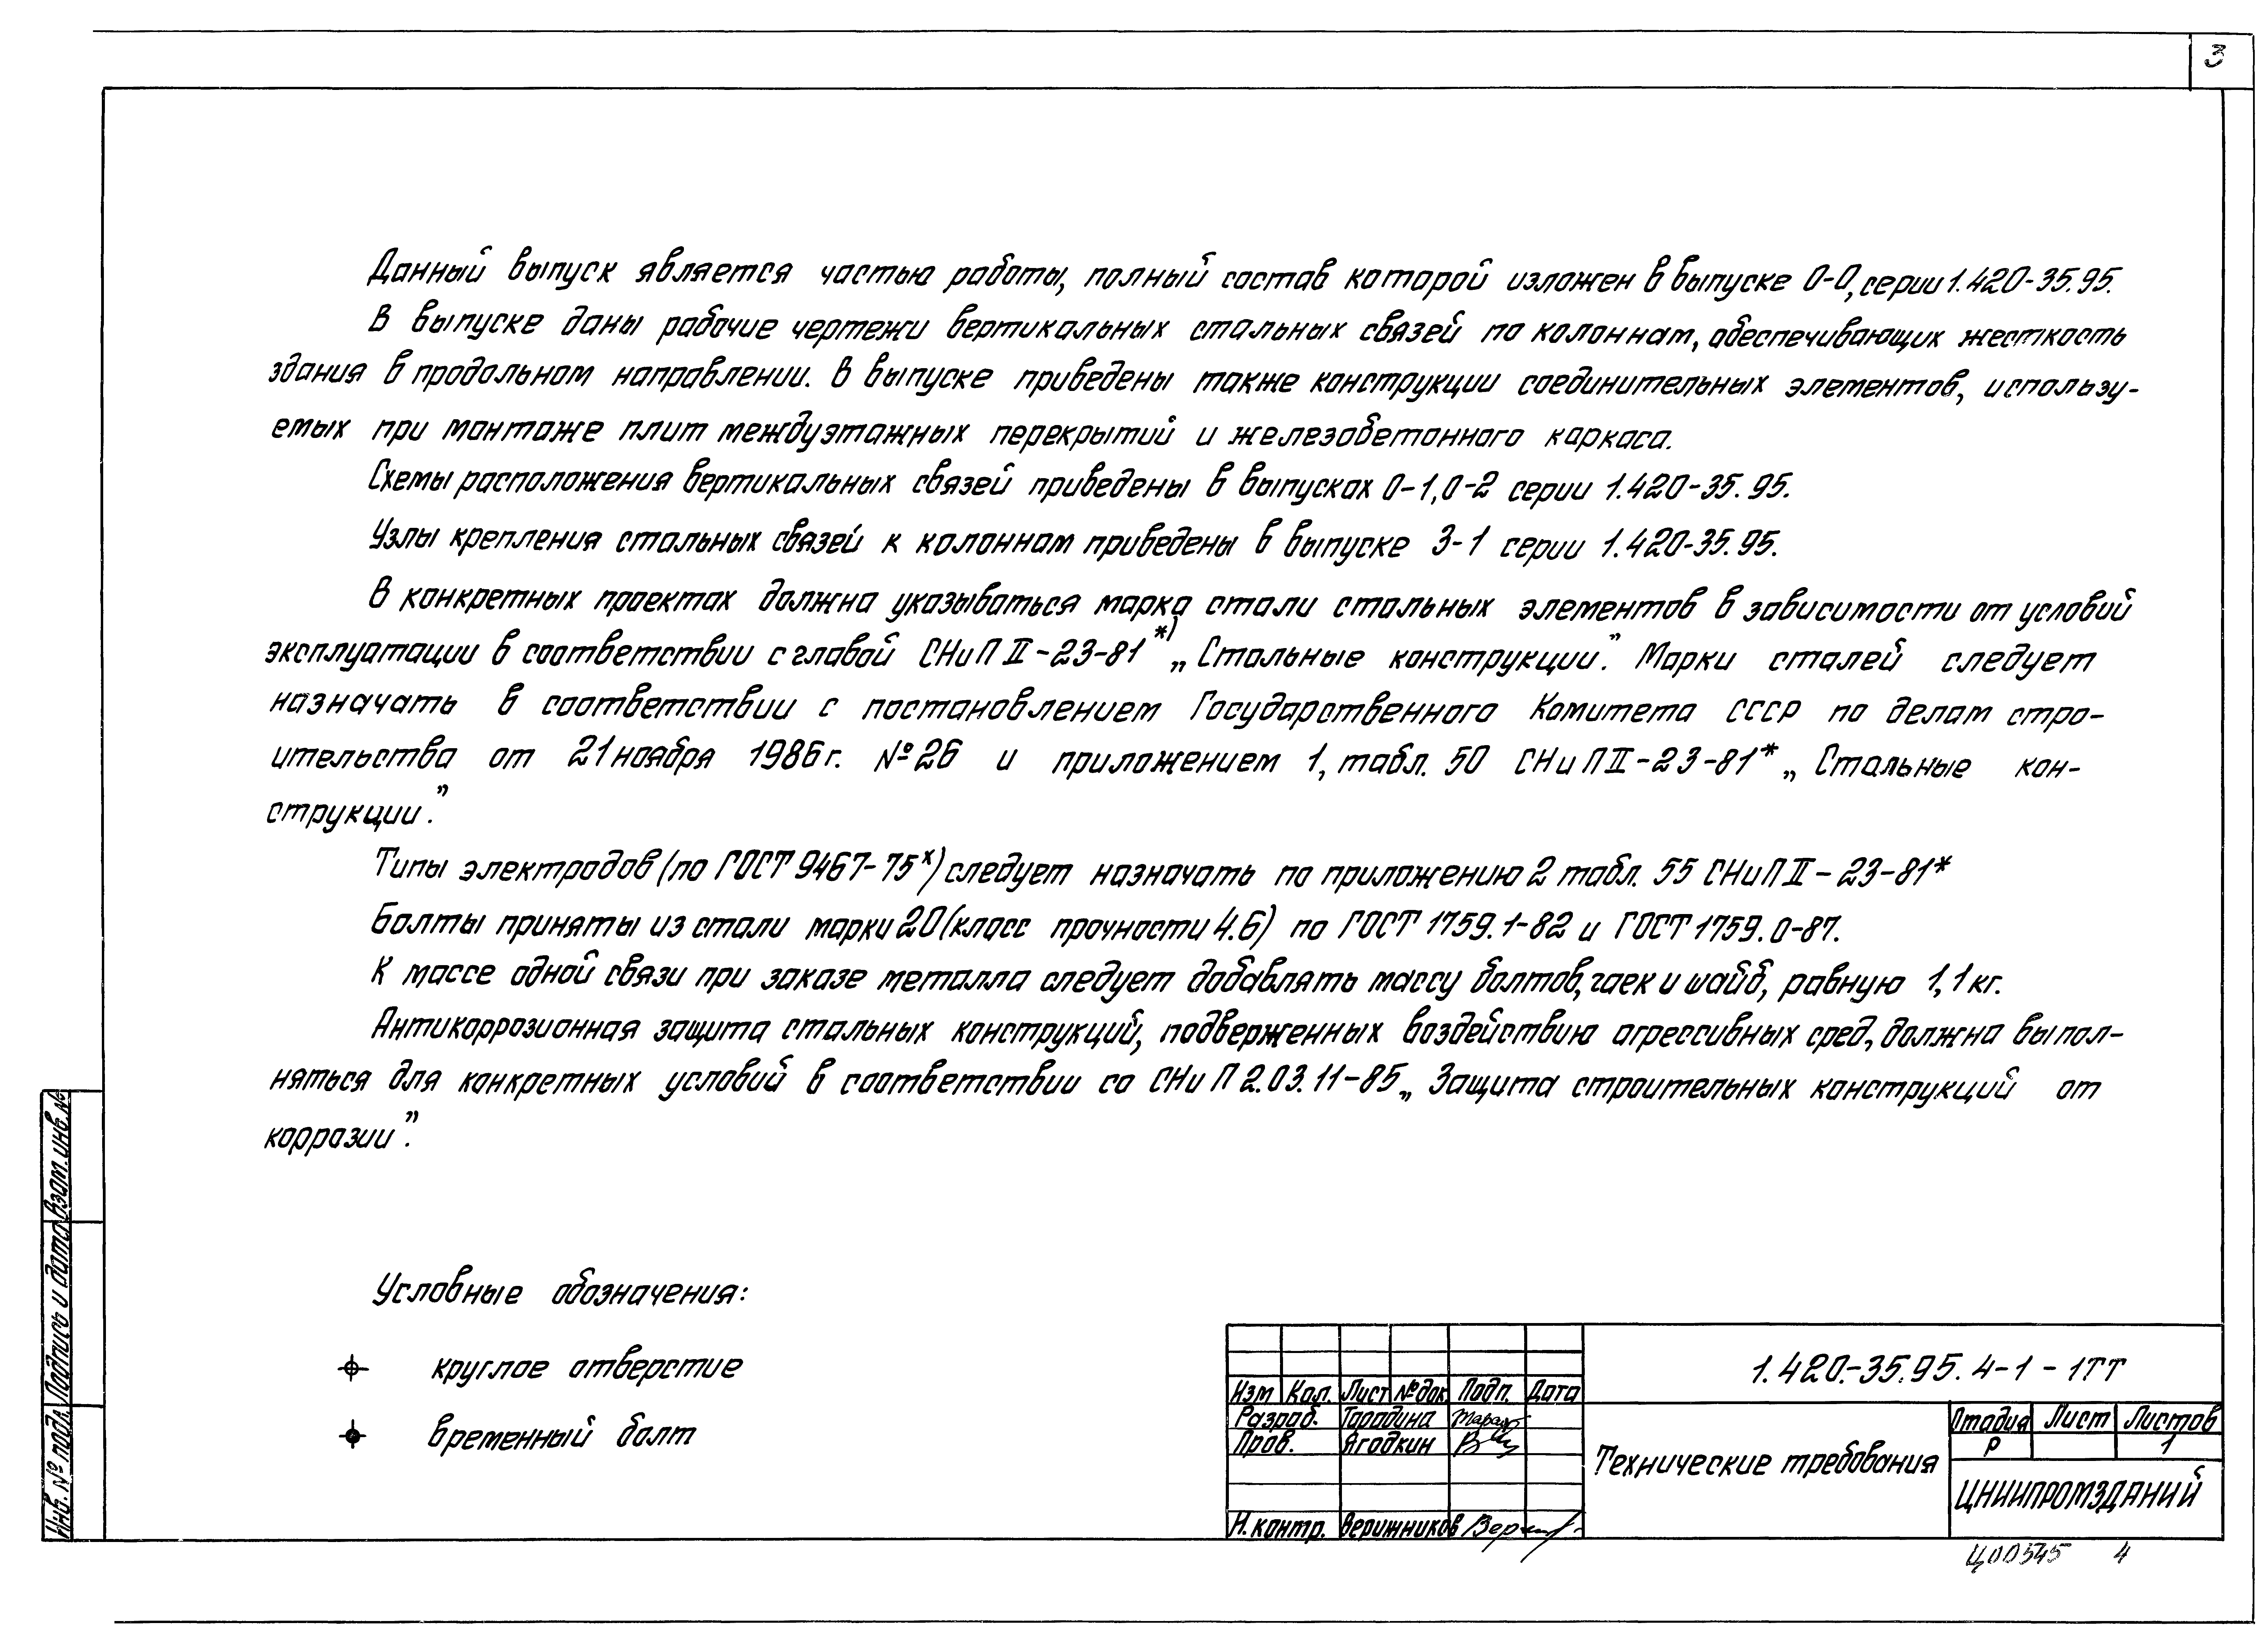 3
Данный выпуск является частью работы, полный состав которой изложен в выпуске 0-0, серии 1.420-35.95.
В выпуске даны рабочие чертежи вертикальных стальных связей по колоннам, обеспечивающих жесткость
здания в продольном направлении. В выпуске приведены также конструкции соединительных элементов, использу-
емых при монтаже плит междуэтажных перекрытий и железобетонного каркаса.
Схемы расположения вертикальных связей приведены в выпусках 0-1, 0-2 серии 1.420-35.95.
Узлы крепления стальных связей к колоннам приведены в выпуске 3-1 серии 1.420-35.95.
В конкретных проектах должна указываться марка стали стальных элементов в зависимости от условий
эксплуатации в соответствии с главой СНиП II-23-81*) „Стальные конструкции”. Марки сталей следует
назначать в соответствии с постановлением Государственного Комитета СССР по делам стро-
ительства от 21 ноября 1986г. №26 и приложением 1, табл. 50 СНиП II-23-81* „Стальные кон-
струкции”.
Типы электродов (по ГОСТ 9467-75*) следует назначать по приложению 2 табл. 55 СНиП II-23-81*
Болты приняты из стали марки 20 (класс прочности 4.6) по ГОСТ 1759.1-82 и ГОСТ 1759.0-87.
К массе одной связи при заказе металла следует добавлять массу болтов, гаек и шайб, равную 1,1 кг.
Антикоррозионная защита стальных конструкций, подверженных воздействию агрессивных сред, должна выпол-
няться для конкретных условий в соответствии со СНиП 2.03.11-85 „Защита строительных конструкций от
коррозии”.
Условные обозначения:
круглое отверстие
временный болт
Инв. № подл. Подпись и дата Взам. инв. №
1.420-35.95. 4-1-1ТТ
Изм Кол. Лист № док. Подп. Дата
Разраб. Тарадина
Пров. Ягодкин
Н. контр. Верижников
Технические требования
Стадия Лист Листов
Р 1
ЦНИИПРОМЗДАНИЙ
Ц00545 4